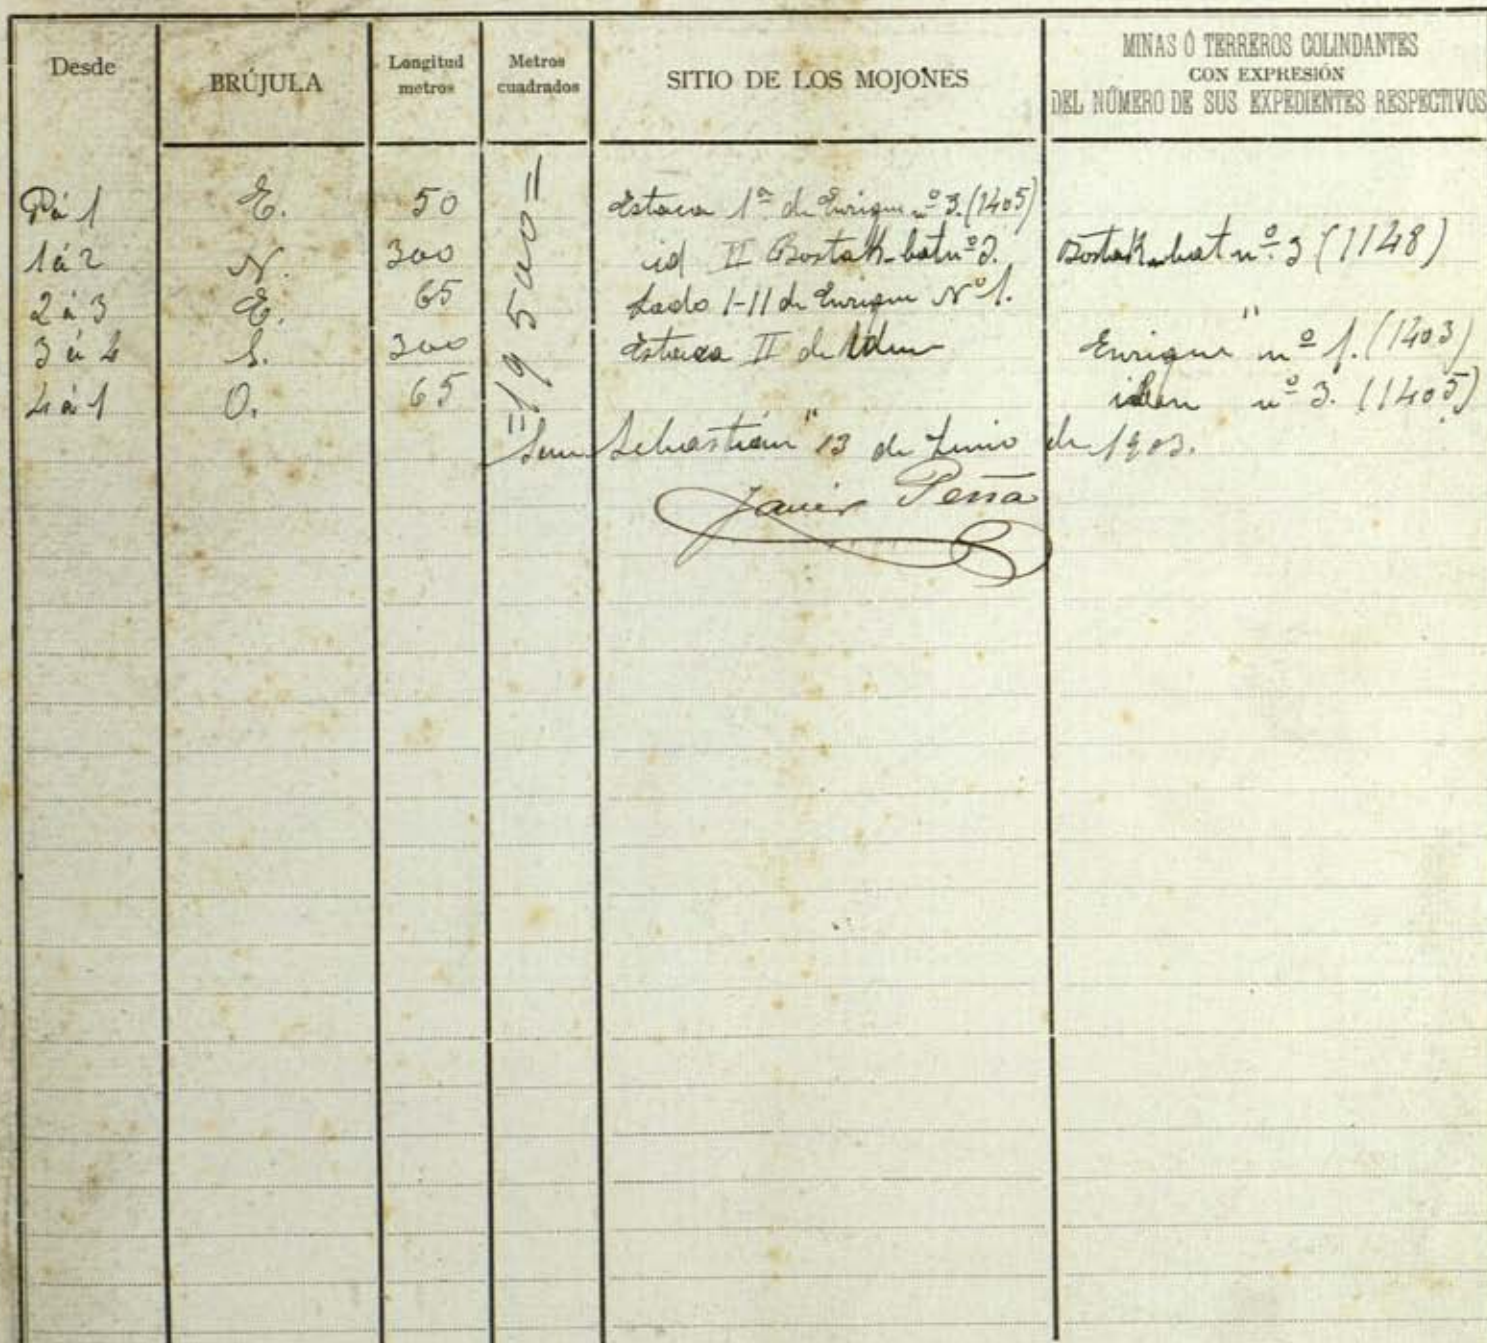 Desde BRÚJULA Longitud metros Metros cuadrados SITIO DE LOS MOJONES MINAS Ó TERREROS COLINDANTES CON EXPRESIÓN DEL NÚMERO DE SUS EXPEDIENTES RESPECTIVOS
P á 1 E. 50 Estaca 1ª de Enrique nº 3. (1405)
1 á 2 N. 300 id II Bostak-bat nº 3. Bostak-bat nº 3 (1148)
2 á 3 E. 65 Lado 1-11 de Enrique Nº 1.
3 á 4 S. 300 Estaca II de Idem Enrique " nº 1. (1403)
4 á 1 O. 65 idem nº 3. (1405)
=19500=
San Sebastián " 13 de Junio de 1903.
Javier Peña